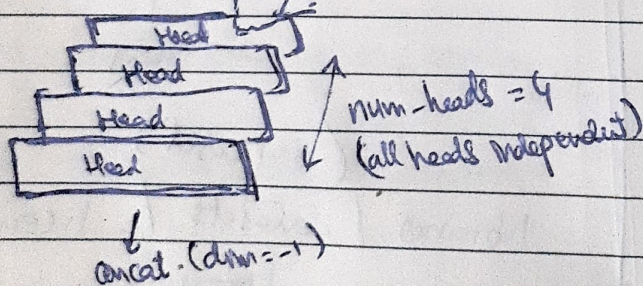 Head
Head
Head
Head
num-heads = 4
(all heads independent)
concat. (dim=-1)